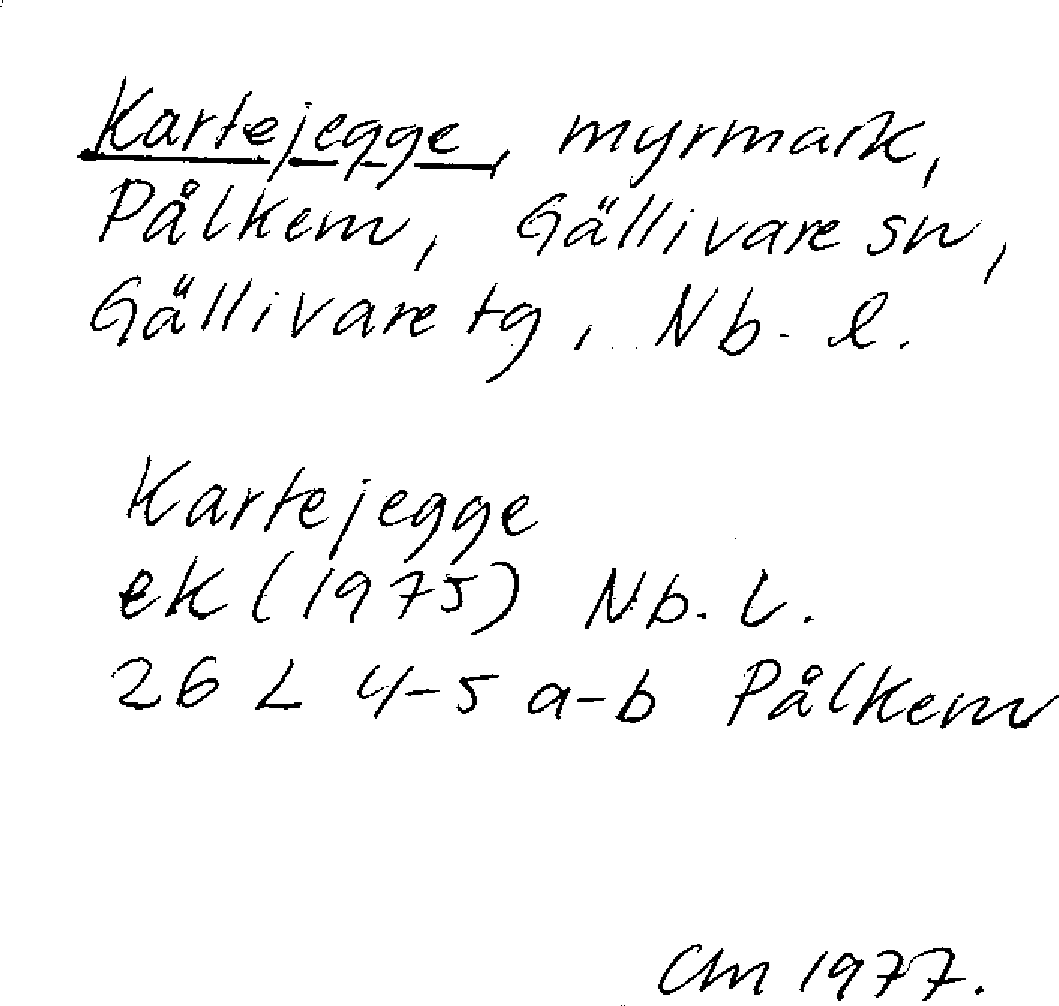 Kartejegge, myrmark,
Pålkem, Gällivare sn,
Gällivare tg, Nb. l.
Kartejegge
ek (1975) Nb. l.
26 L 4-5 a-b Pålkem
CM 1977.